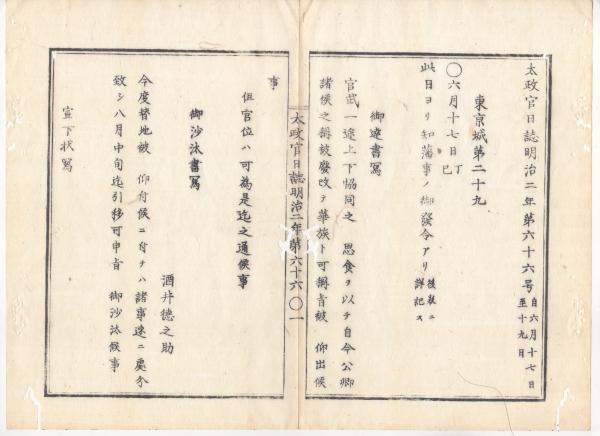 太政官日誌明治二年第六十六号 自六月十七日 至十九日
東京城第二十九
〇六月十七日 丁巳
此日ヨリ知藩事ノ御發令アリ 後報ニ詳記ス
御達書寫
官武一途上下協同之 思食ヲ以テ自今公卿
諸侯之稱被廢改テ華族ト可稱旨被 仰出候
事
太政官日誌明治二年第六十六 〇一
但官位ハ可為是迄之通候事
御沙汰書寫
酒井德之助
今度替地被 仰付候ニ付テハ諸事速ニ處分
致シ八月中旬迄引移可申旨 御沙汰候事
宣下状寫